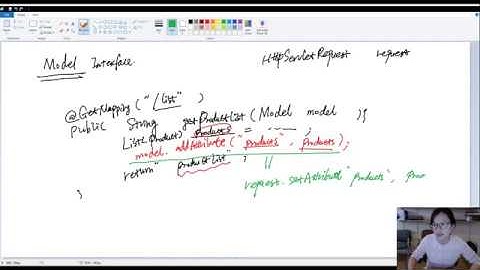 Model Interface
HttpServletRequest request
@GetMapping("/list" )
public String getProductList(Model model ){
List<Product> products = ---- ;
model.addAttribute("products", products);
return "productList" ;
request.setAttribute "products",
}